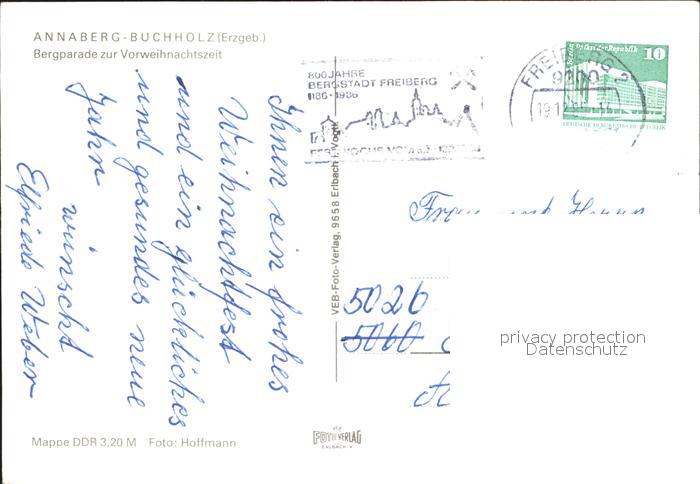 ANNABERG-BUCHHOLZ (Erzgeb.)
Bergparade zur Vorweihnachtszeit
Ihnen ein frohes
Weihnachtfest
und ein glückliches
und gesundes neue
Jahr
wünscht
Elfriede Weber
VEB-Foto-Verlag, 9658 Erlbach i. Vogtl.
800 JAHRE
BERGSTADT FREIBERG
1186-1986
FREIBERG 2
9200
19.12
Palast der Republik
10
DEUTSCHE DEMOKRATISCHE REPUBLIK
Frau und Herrn
5026
5060
privacy protection
Datenschutz
Mappe DDR 3,20 M Foto: Hoffmann
VEB
FOTO VERLAG
ERLBACH V.